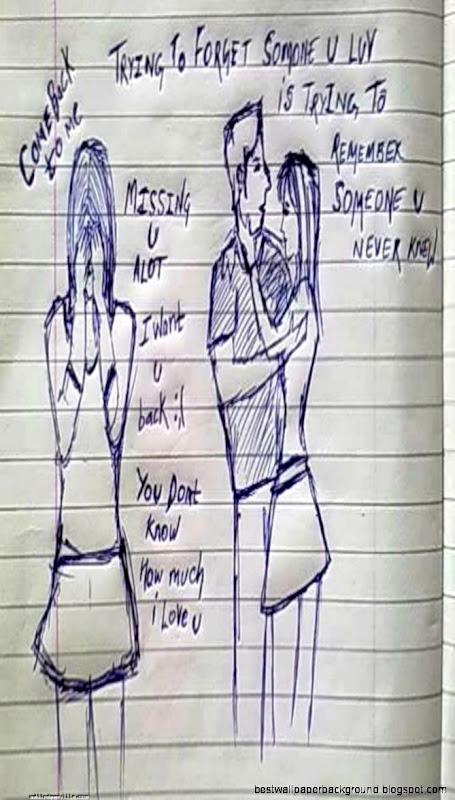 TRYING TO FORGET SOMONE U LUV
IS TRYING TO
REMEMBER
SOMEONE U
NEVER KNEW
COME BACK
to ME
MISSING
U
ALOT
I Want
U
back :(
You Dont
Know
How much
i Love u
bestwallpaperbackground.blogspot.com